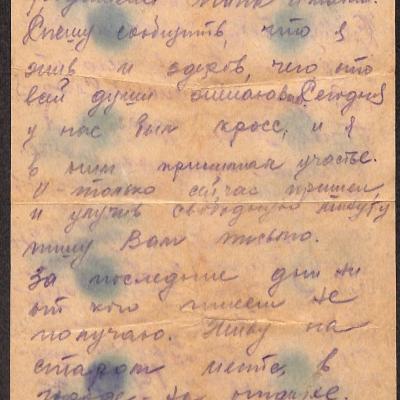 Спешу сообщить, что я
жив и здоров, чего от
всей души желаю Вам. Сегодня
у нас был кросс, и я
в нём принимал участие.
И только сейчас пришел,
и улучив свободную минуту
пишу Вам письмо.
За последние дни ни
от кого писем не
получаю. Живу на
старом месте, в